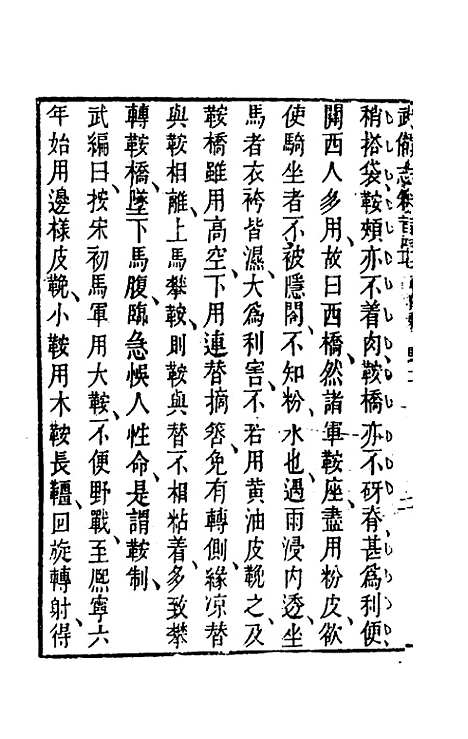 武備志卷一百四十
稍搭袋鞍頰亦不着肉鞍橋亦不砑脊甚爲利便
關西人多用故曰西橋然諸軍鞍座盡用粉皮欲
使騎坐者不被隱閣不知粉水也遇雨浸内透坐
馬者衣袴皆濕大爲利害不若用黄油皮鞔之及
鞍橋雖用高空下用連替摘窣免有轉側緣凉替
與鞍相離上馬攀鞍則鞍與替不相粘着多致攀
轉鞍橋墜下馬腹臨急悞人性命是謂鞍制
武編曰按宋初馬軍用大鞍不便野戰至熈寧六
年始用邊樣皮鞔小鞍用木鞍長韁回旋轉射得